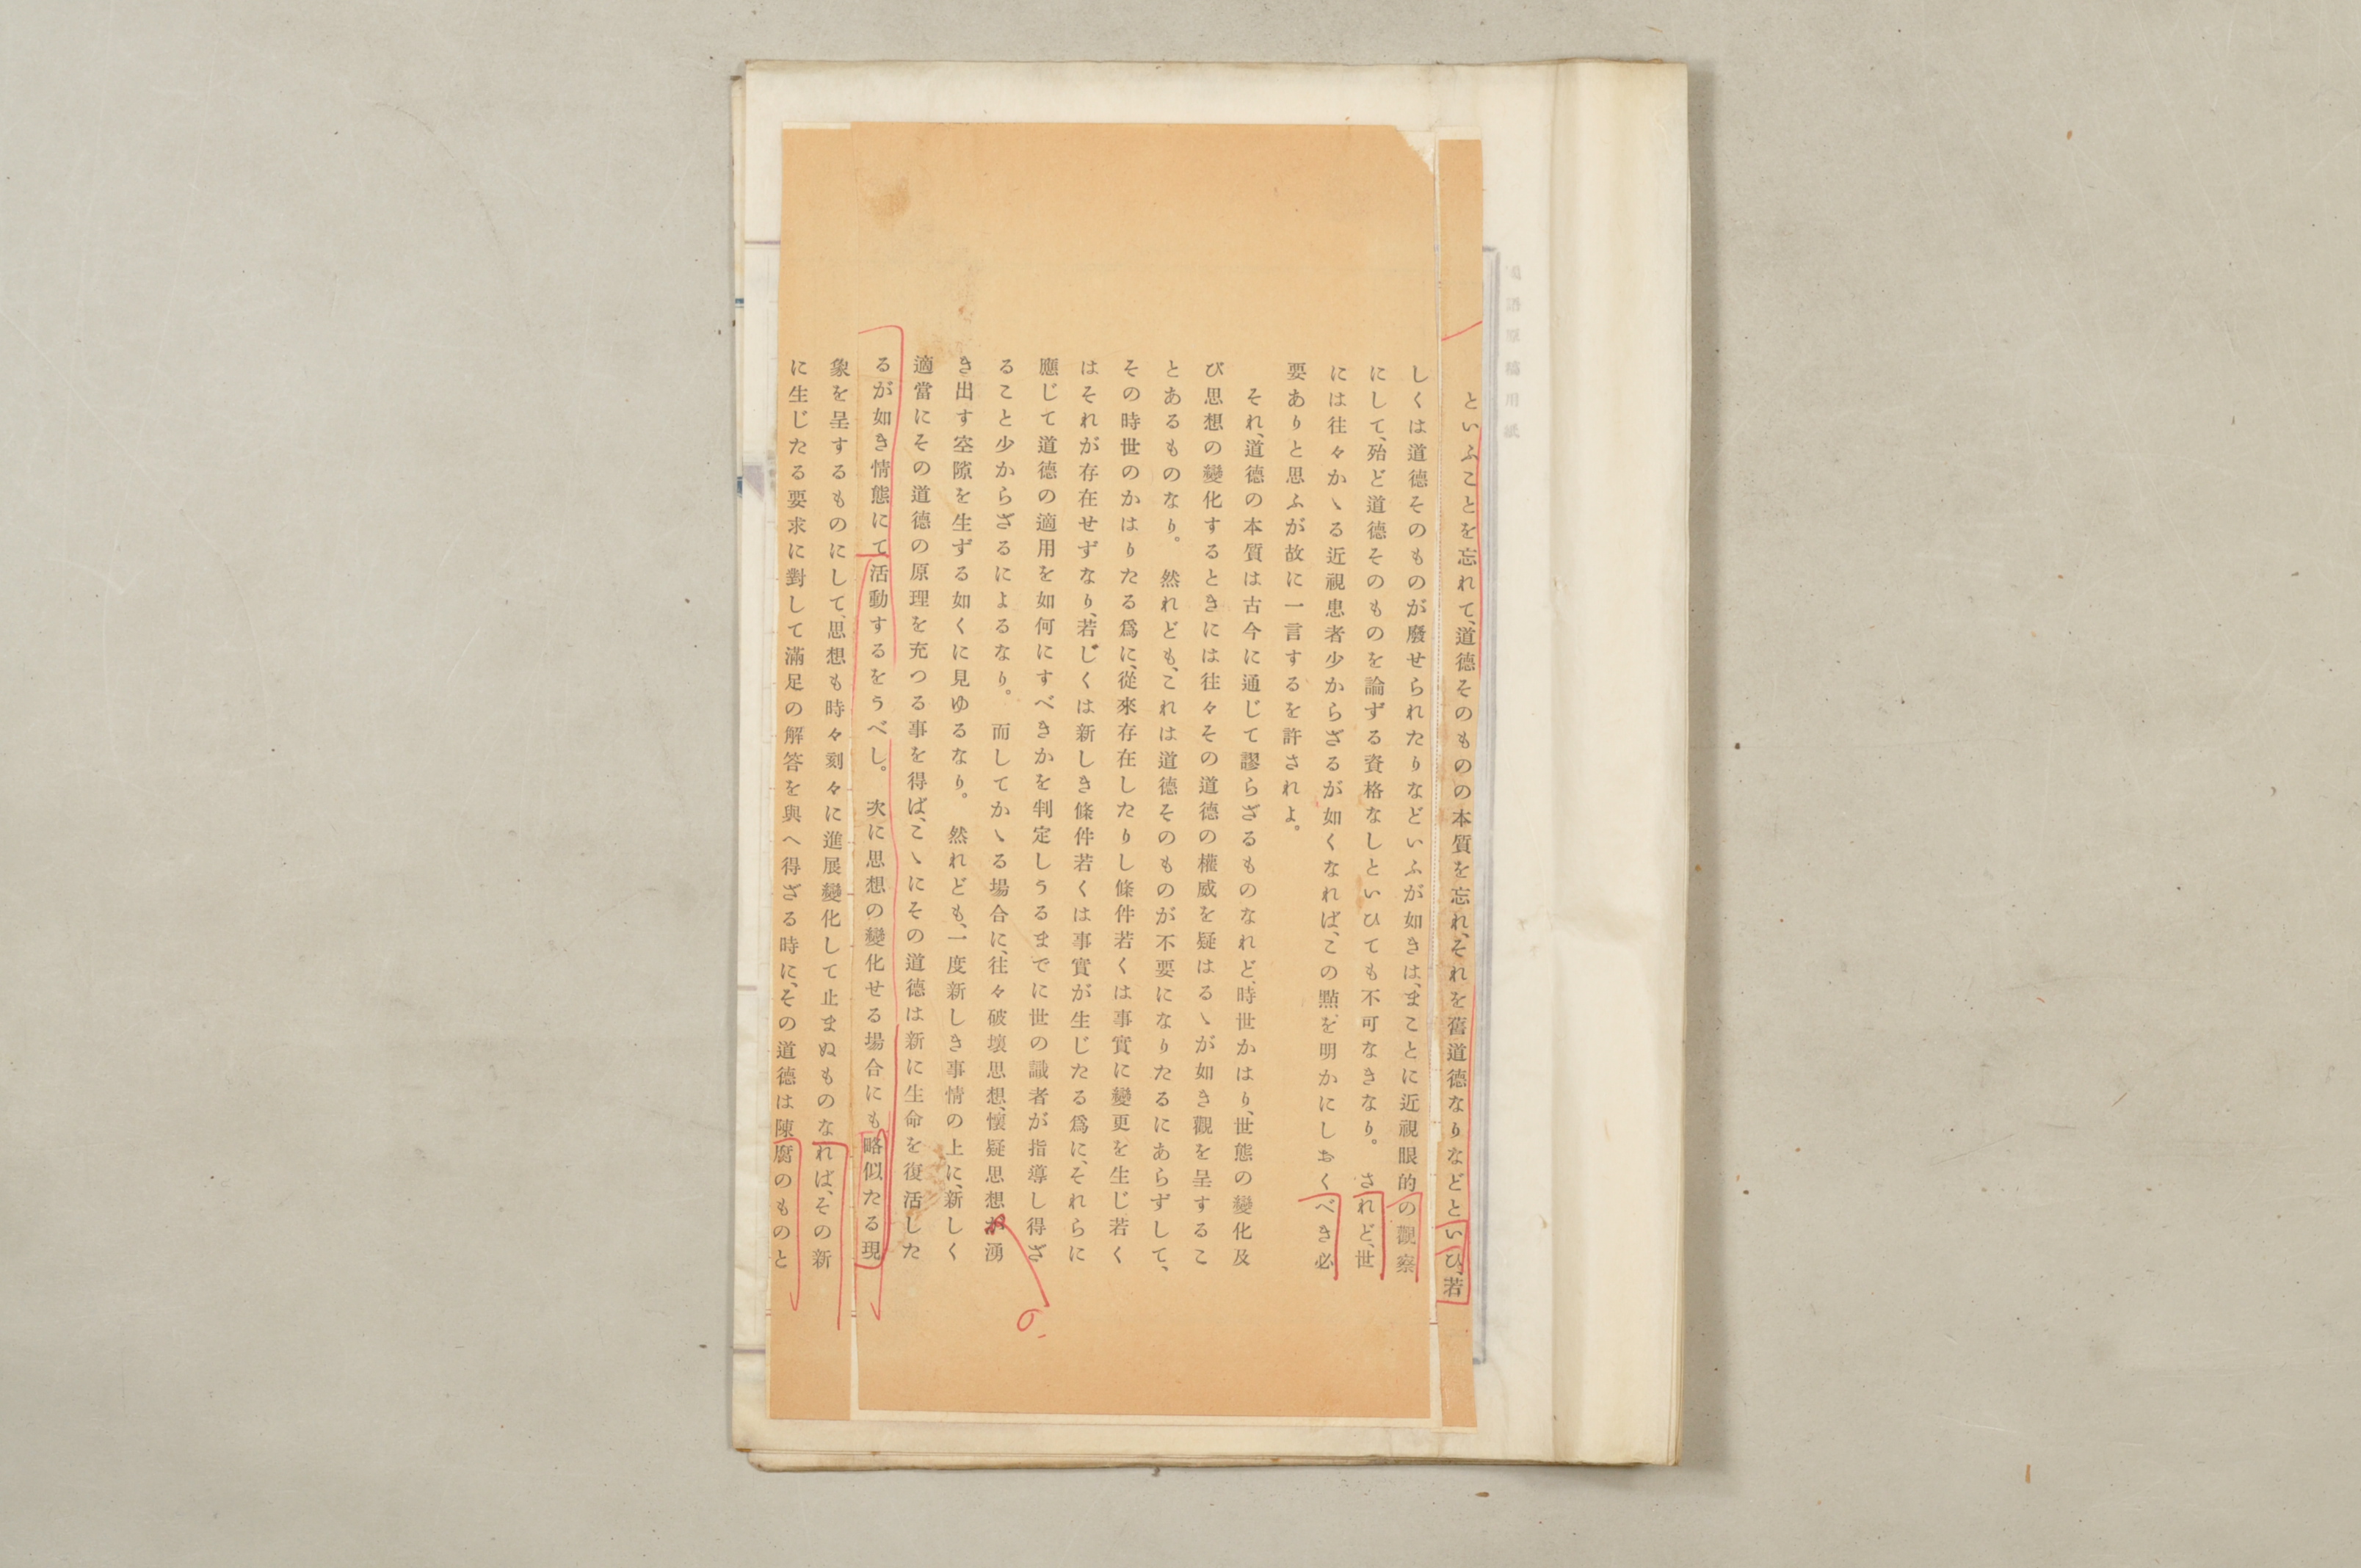 といふことを忘れて、道德そのものの本質を忘れ、それを舊道德なりなどといひ、若
しくは道德そのものが廢せられたりなどいふが如きは、まことに近視眼的の觀察
にして、殆ど道德そのものを論ずる資格なしといひても不可なきなり。 されど、世
には往々かゝる近視患者少からざるが如くなれば、この點を明かにしおくべき必
要ありと思ふが故に一言するを許されよ。
それ、道德の本質は古今に通じて謬らざるものなれど、時世かはり、世態の變化及
び思想の變化するときには往々その道德の權威を疑はるゝが如き觀を呈するこ
とあるものなり。 然れども、これは道德そのものが不要になりたるにあらずして、
その時世のかはりたる爲に、從來存在したりし條件若くは事實に變更を生じ若く
はそれが存在せずなり、若じくは新しき條件若くは事實が生じたる爲に、それらに
應じて道德の適用を如何にすべきかを判定しうるまでに世の識者が指導し得ざ
ること少からざるによるなり。 而してかゝる場合に、往々破壞思想、懷疑思想が湧
き出す空隙を生ずる如くに見ゆるなり。 然れども、一度新しき事情の上に、新しく
適當にその道德の原理を充つる事を得ば、こゝにその道德は新に生命を復活した
るが如き情態にて活動するをうべし。 次に思想の變化せる場合にも略似たる現
象を呈するものにして、思想も時々刻々に進展變化して止まぬものなれば、その新
に生じたる要求に對して滿足の解答を與へ得ざる時に、その道德は陳腐のものと
の
原稿用紙